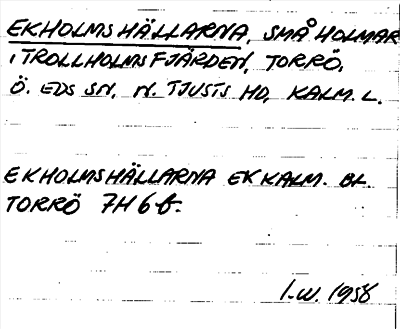 EKHOLMSHÄLLARNA, SMÅ HOLMAR
I TROLLHOLMSFJÄRDEN, TORRÖ,
Ö. EDS SN, N. TJUSTS HD, KALM. L.
EKHOLMSHÄLLARNA EK KALM. BL.
TORRÖ 7H 6 b.
I.W. 1958